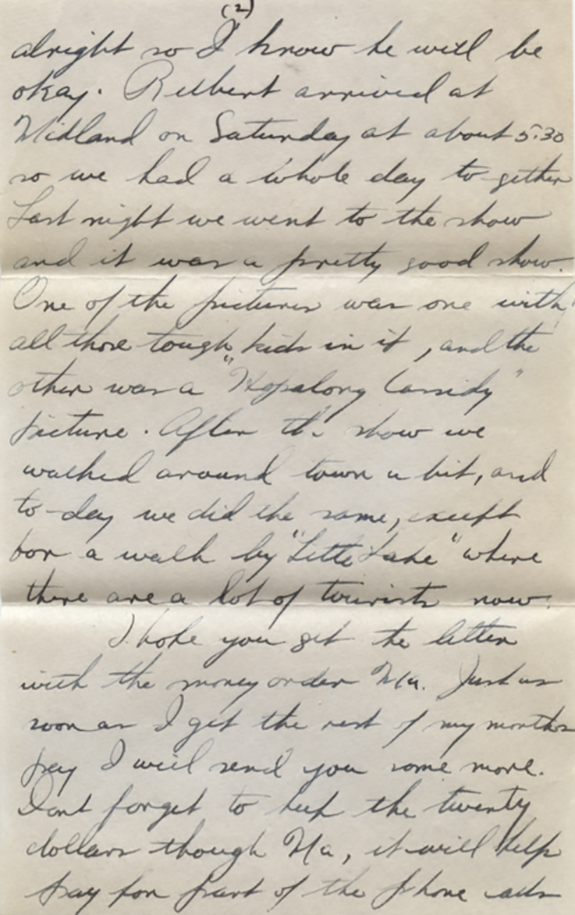 (2)
alright so I know he will be
okay. Rubbert arrived at
Midland on Saturday at about 5.30
so we had a whole day to-gether
Last night we went to the show
and it was a pretty good show.
One of the pictures was one with
all those tough kids in it, and the
other was a "Hopalong Cassidy"
picture. After the show we
walked around town a bit, and
to-day we did the same, except
for a walk by "Little Lake" where
there are a lot of tourists now.
I hope you get the letter
with the money order Ma. Just as
soon as I get the rest of my months
pay I will send you some more.
Dont forget to keep the twenty
dollars though Ma, it will help
pay for part of the phone